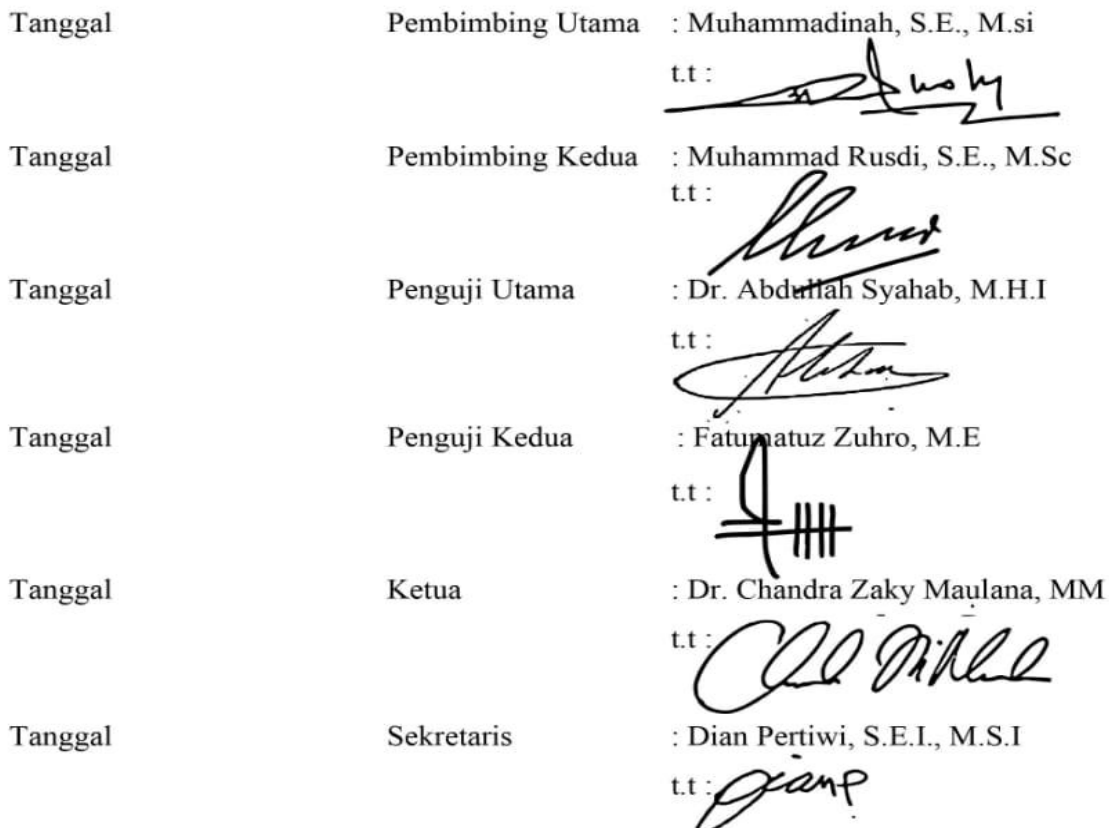 Tanggal Pembimbing Utama : Muhammadinah, S.E., M.si
t.t :
Tanggal Pembimbing Kedua : Muhammad Rusdi, S.E., M.Sc
t.t :
Tanggal Penguji Utama : Dr. Abdullah Syahab, M.H.I
t.t :
Tanggal Penguji Kedua : Fatumatuz Zuhro, M.E
t.t :
Tanggal Ketua : Dr. Chandra Zaky Maulana, MM
t.t :
Tanggal Sekretaris : Dian Pertiwi, S.E.I., M.S.I
t.t :